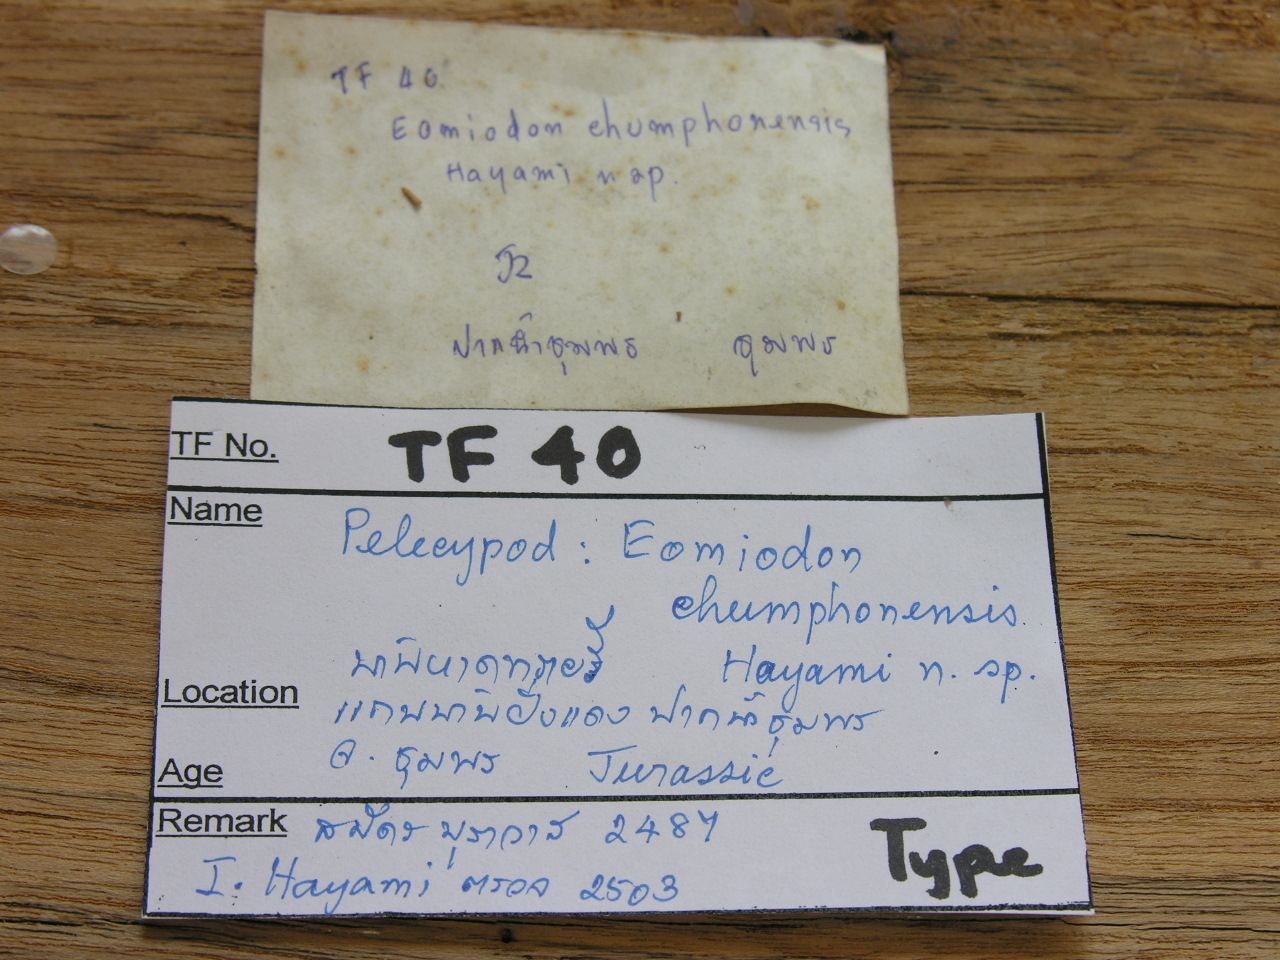 TF 40
Eomiodon chumphonensis
Hayami n sp.
J2
ปากน้ำชุมพร ชุมพร
TF No. TF 40
Name
Pelecypod : Eomiodon
chumphonensis
Hayami n. sp.
Location
แถบ ปากน้ำชุมพร
จ. ชุมพร Jurassic
Age
Remark สมัคร บุราวาส 2487
I. Hayami ตรวจ 2503
Type